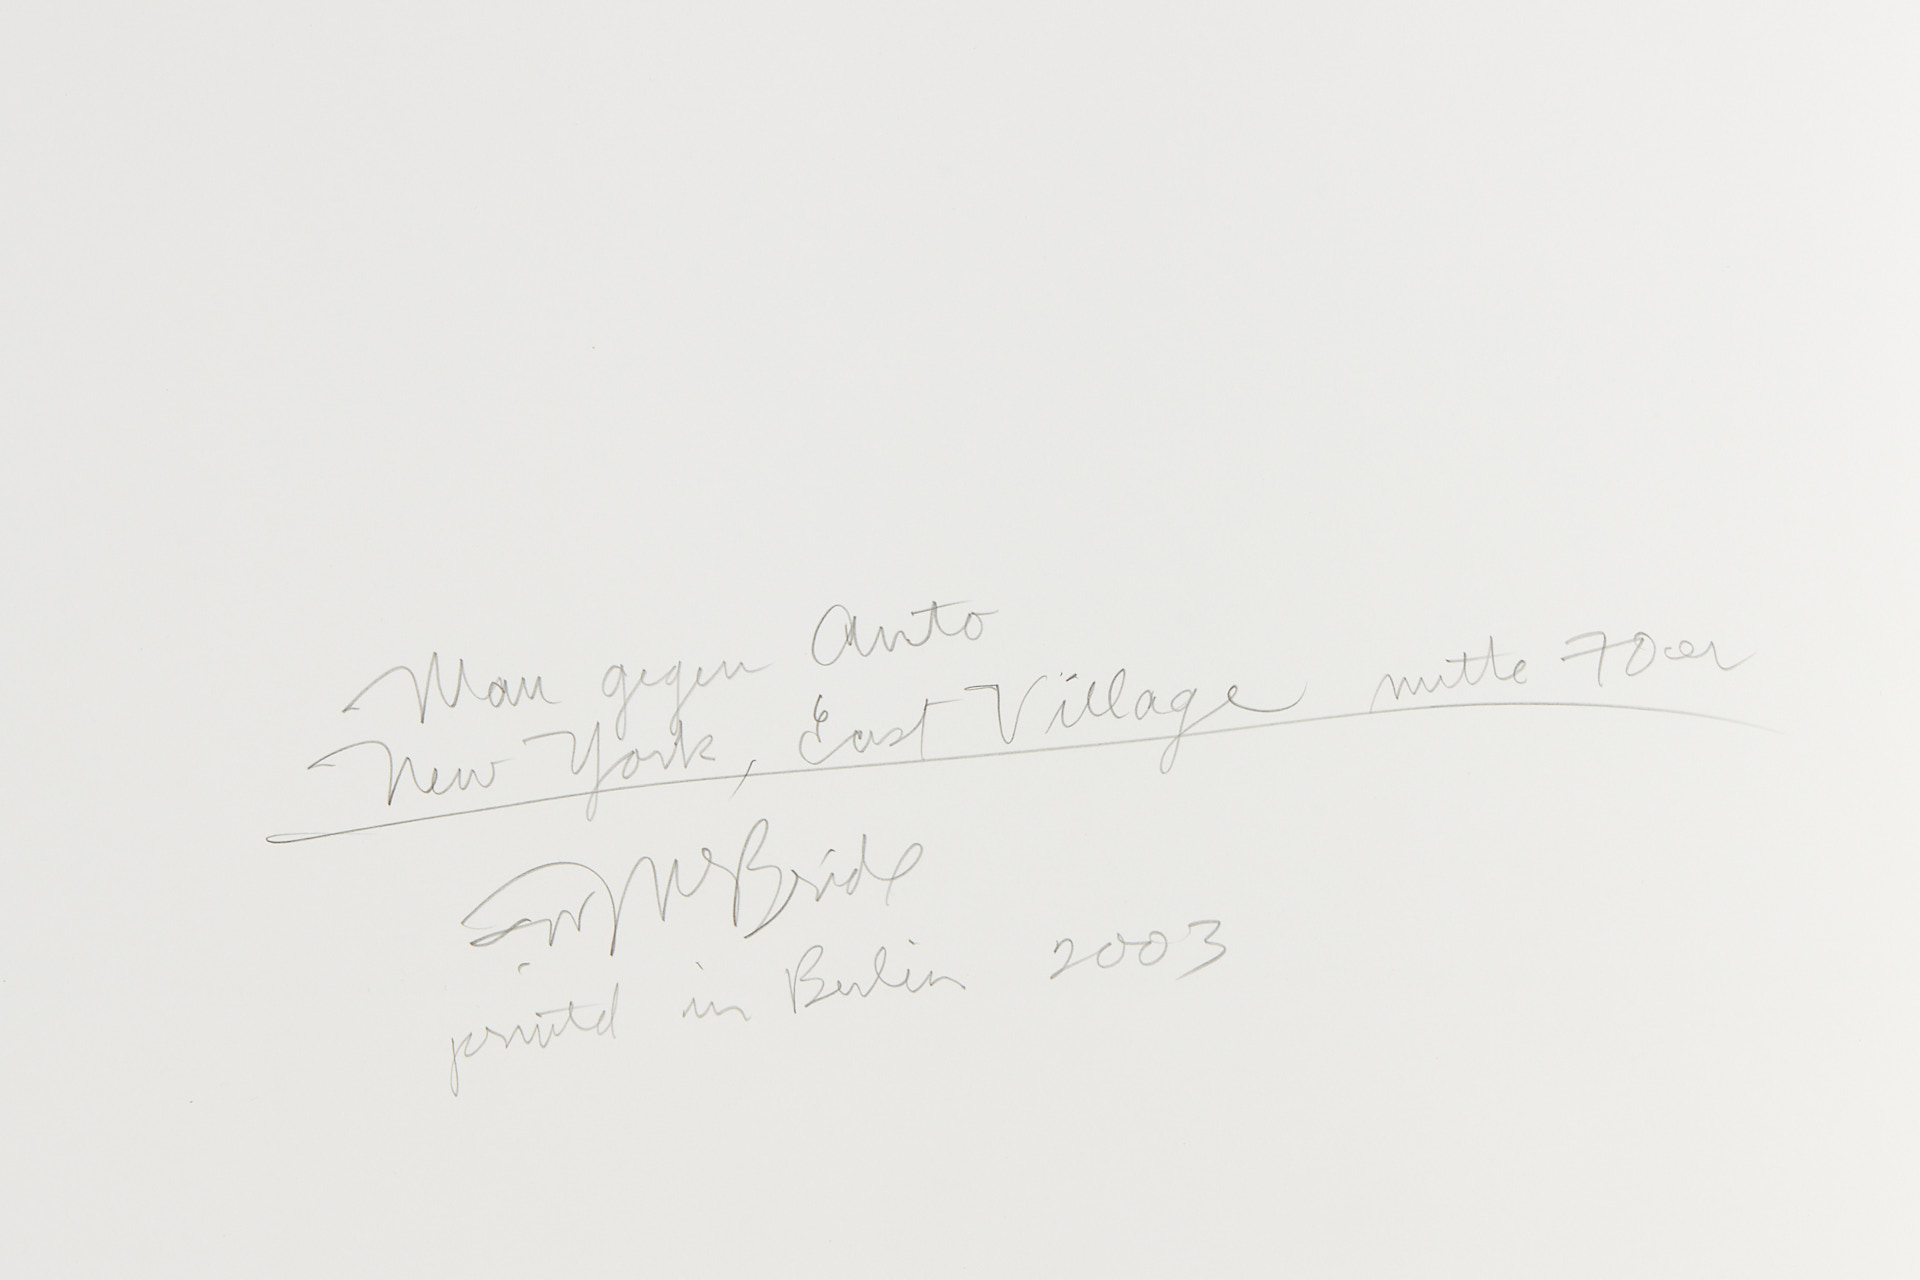 Man gegen Auto
New York, East Village mitte 70er
McBride
printed in Berlin 2003